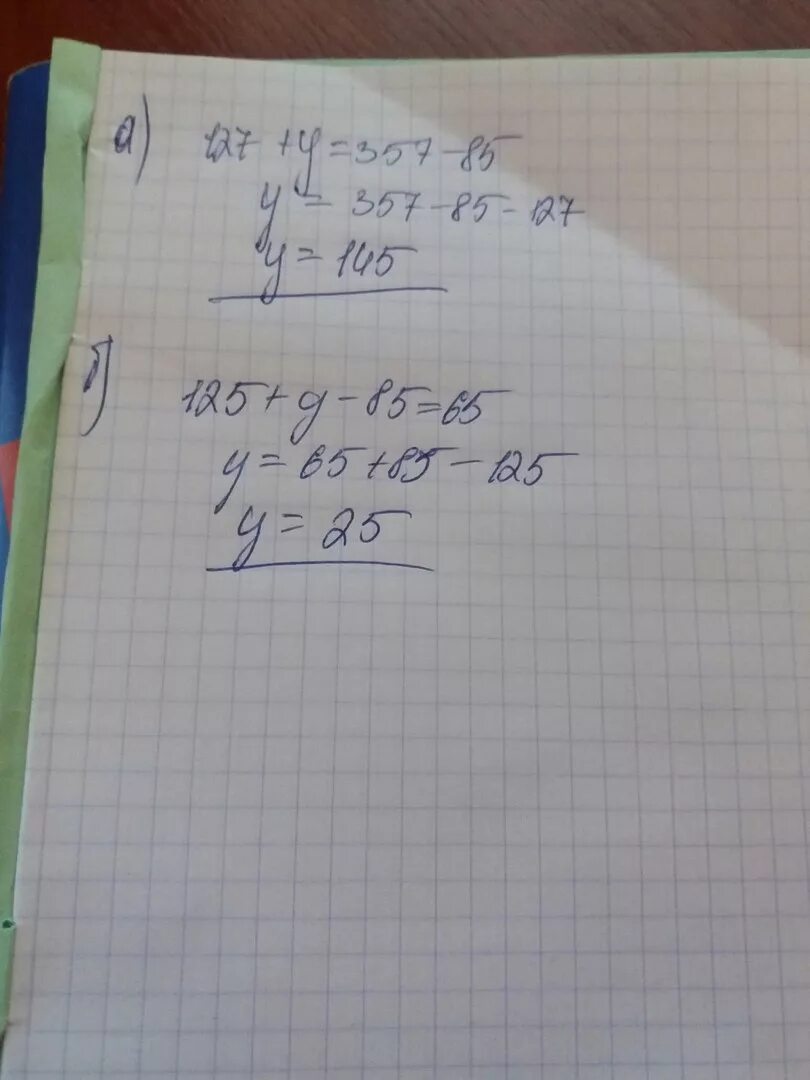 а) 127 + y = 357 - 85
y = 357 - 85 - 127
y = 145
б) 125 + y - 85 = 65
y = 65 + 85 - 125
y = 25